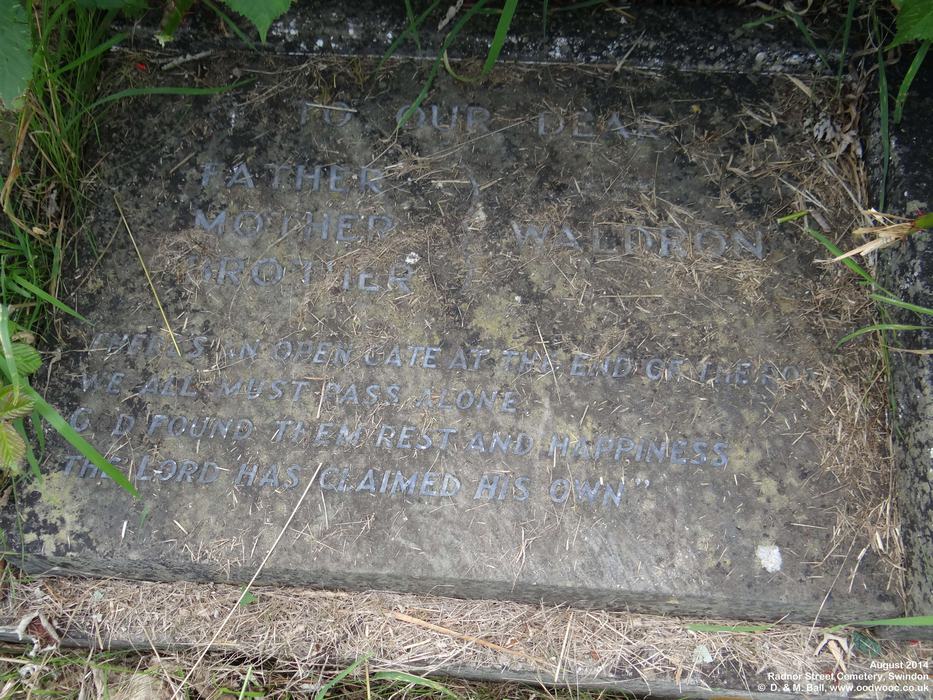 TO OUR DEAR
FATHER
MOTHER WALDRON
BROTHER
THERE IS AN OPEN GATE AT THE END OF THE ROAD
WE ALL MUST PASS ALONE
GOD FOUND THEM REST AND HAPPINESS
THE LORD HAS CLAIMED HIS OWN"
August 2014
Radnor Street Cemetery, Swindon
© D. & M. Ball, www.oodwooc.co.uk